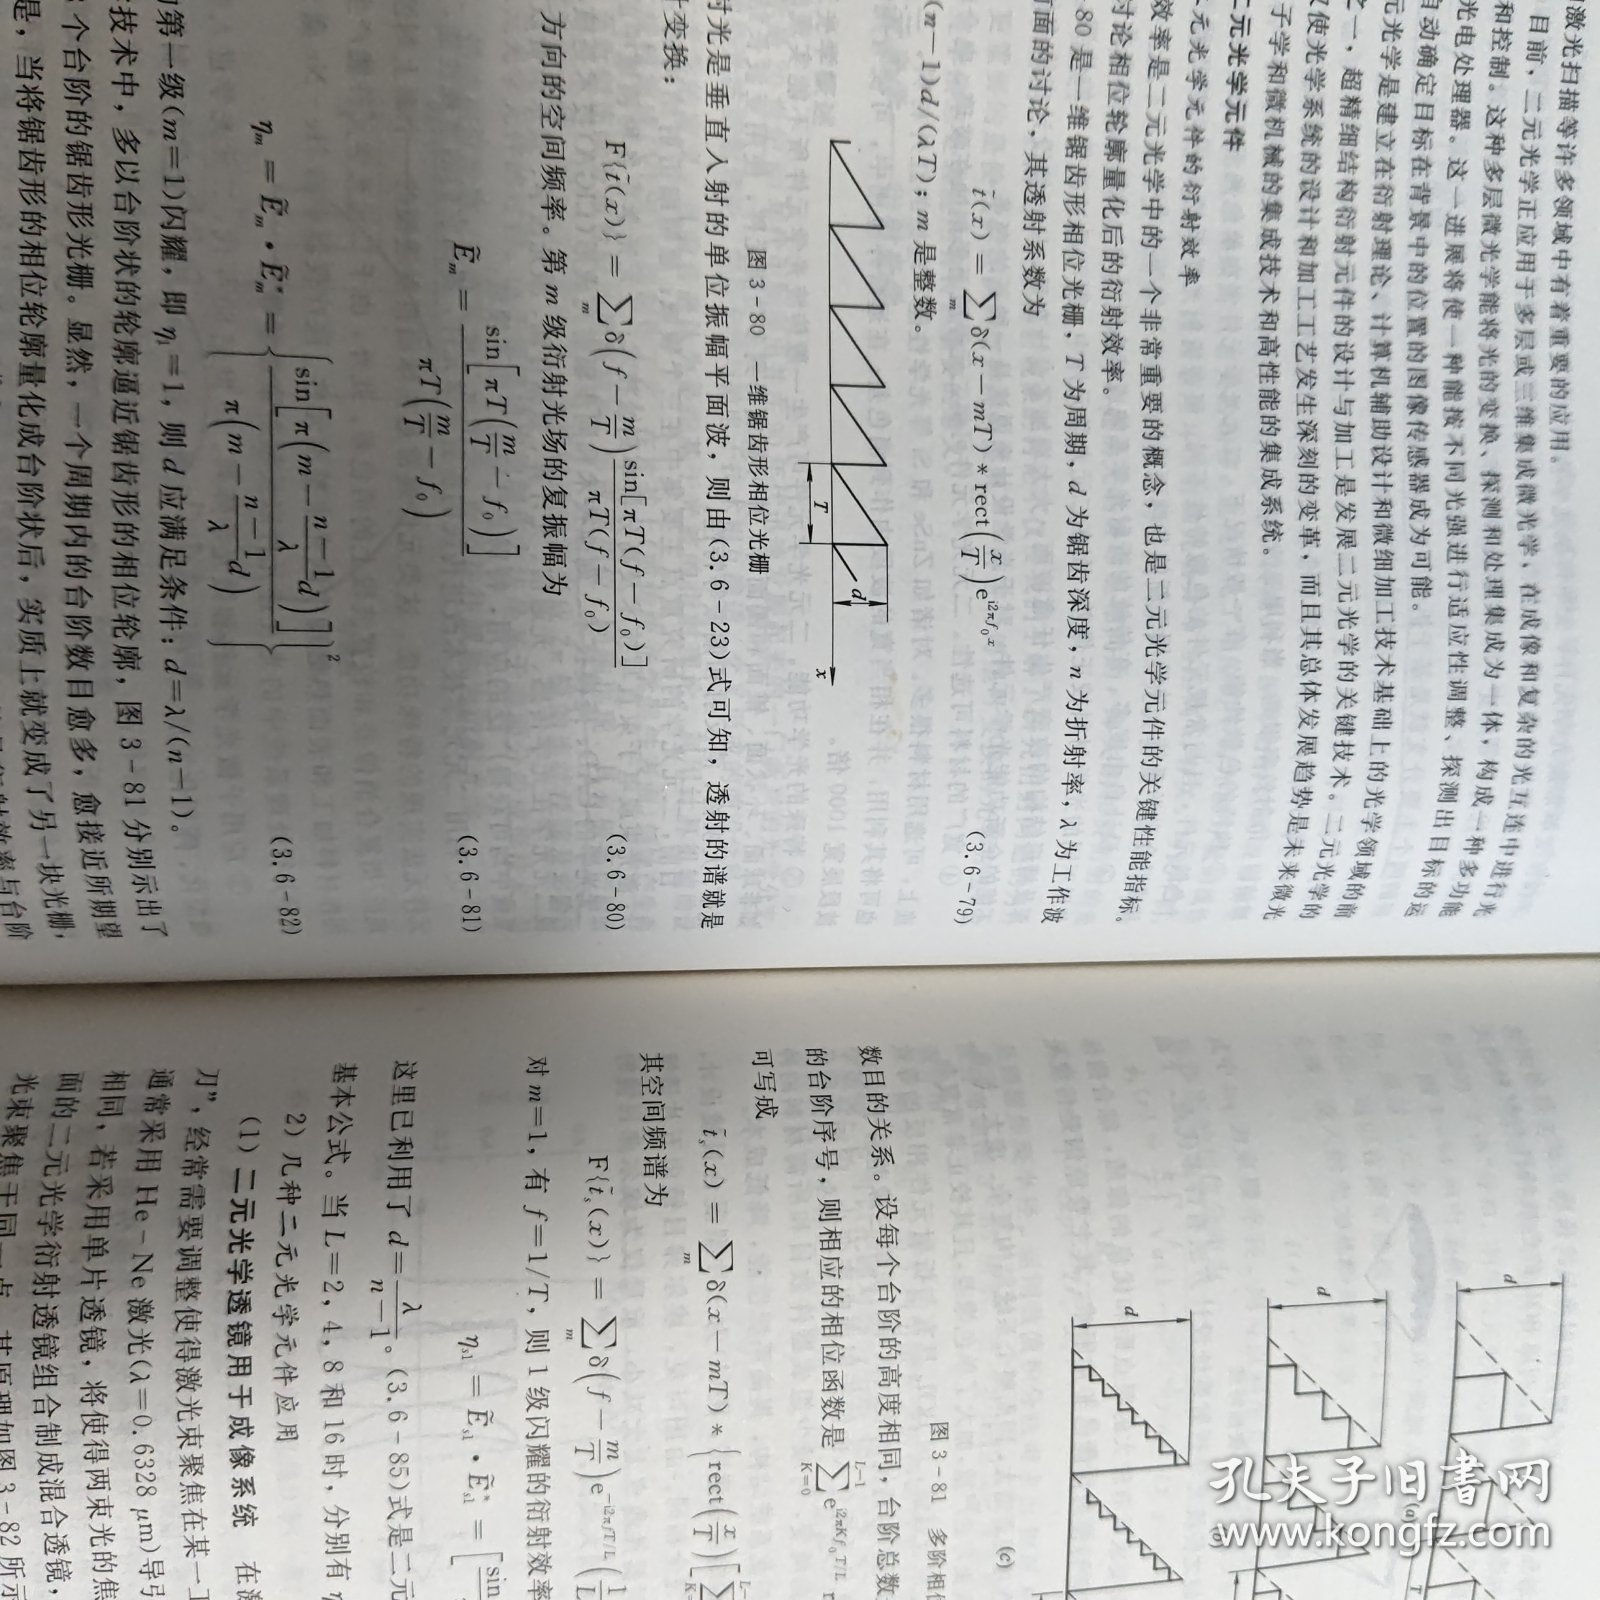 激光扫描等许多领域中有着重要的应用。
目前，二元光学正应用于多层或三维集成微光学，在成像和复杂的光互连中进行光
和控制。这种多层微光学能将光的变换、探测和处理集成为一体，构成一种多功能
光电处理器。这一进展将使一种能按不同光强进行适应性调整、探测出目标的运
自动确定目标在背景中的位置的图像传感器成为可能。
元光学是建立在衍射理论、计算机辅助设计和微细加工技术基础上的光学领域的前
之一，超精细结构衍射元件的设计与加工是发展二元光学的关键技术。二元光学的
仅使光学系统的设计和加工工艺发生深刻的变革，而且其总体发展趋势是未来微光
子学和微机械的集成技术和高性能的集成系统。
二元光学元件
元光学元件的衍射效率
效率是二元光学中的一个非常重要的概念，也是二元光学元件的关键性能指标。
讨论相位轮廓量化后的衍射效率。
-80是一维锯齿形相位光栅，T为周期，d为锯齿深度，n为折射率，λ为工作波
前面的讨论，其透射系数为
t̃(x)=∑m δ(x−mT)*rect(x/T)e^{i2πf₀x} (3.6-79)
(n−1)d/(λT)；m是整数。
T
d
x
图3-80 一维锯齿形相位光栅
射光是垂直入射的单位振幅平面波，则由(3.6-23)式可知，透射的谱就是
变换：
F{t̃(x)}=∑m δ(f−m/T) sin[πT(f−f₀)]/πT(f−f₀) (3.6-80)
方向的空间频率。第m级衍射光场的复振幅为
Ẽm=sin[πT(m/T−f₀)]/πT(m/T−f₀) (3.6-81)
ηm=Ẽm·Ẽm*={sin[π(m−(n−1)/λ d)]/π(m−(n−1)/λ d)}² (3.6-82)
第一级(m=1)闪耀，即η₁=1，则d应满足条件：d=λ/(n−1)。
技术中，多以台阶状的轮廓逼近锯齿形的相位轮廓，图3-81分别示出了
个台阶的锯齿形光栅。显然，一个周期内的台阶数目愈多，愈接近所期望
是，当将锯齿形的相位轮廓量化成台阶状后，实质上就变成了另一块光栅，
效率与台阶
d
d
d
(a)
T
(c)
图3-81 多阶相位
数目的关系。设每个台阶的高度相同，台阶总数
的台阶序号，则相应的相位函数是∑_{K=0}^{L−1} e^{i2πKf₀T/L}
可写成
t̃s(x)=∑m δ(x−mT)*{rect(x/T)[∑
其空间频谱为
F{t̃s(x)}=∑m δ(f−m/T)e^{−i2πfT/L}(1/L
对m=1，有f=1/T，则1级闪耀的衍射效率
ηs1=Ẽs1·Ẽs1*=[sin
这里已利用了d=λ/(n−1)。(3.6-85)式是二元
基本公式。当L=2，4，8和16时，分别有η
2) 几种二元光学元件应用
(1) 二元光学透镜用于成像系统 在激
刀”，经常需要调整使得激光束聚焦在某一工
通常采用He-Ne激光(λ=0.6328 μm)导引
相同，若采用单片透镜，将使得两束光的焦
面的二元光学衍射透镜组合制成混合透镜，
光束聚焦于同一点，其原理如图3-82所示
孔夫子旧书网
www.kongfz.com